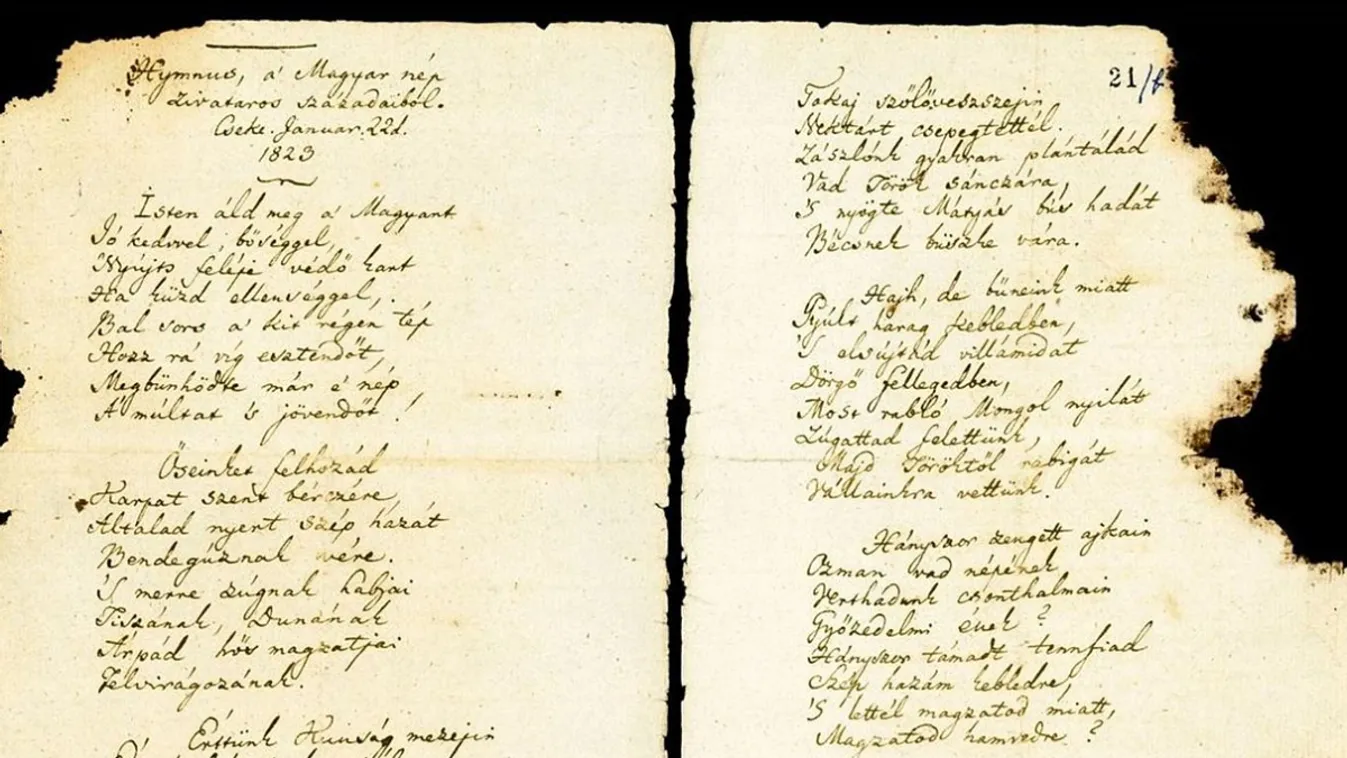 Hymnus, a' Magyar nép
zivataros századaiból.
Cseke. Januar. 22d.
1823
Isten áld meg a' Magyart
Jó kedvvel, bőséggel,
'Nyújts feléje védő kart
Ha küzd ellenséggel,
Bal sors a' kit régen tép
Hozz rá víg esztendőt,
Megbünhödte már e' nép
A' múltat 's jövendőt!
Őseinket felhozád
Kárpát szent bérczére
Általad nyert szép hazát
Bendegúznak vére.
'S merre zúgnak habjai
Tiszának, Dunának
Árpád hős magzatjai
Felvirágozának.
Értünk Kunság mezejin
21/b
Tokaj szőlővesszejin
Nektárt csepegtettél.
Zászlónk gyakran plántálád
Vad Török sánczára,
'S nyögte Mátyás bús hadát
Bécsnek büszke vára.
Hajh, de bűneink miatt
Gyúlt harag kebledben,
'S elsújtád villámidat
Dörgő fellegedben,
Most rabló Mongol nyilát
Zúgattad felettünk,
Majd Töröktől rabigát
Vállainkra vettünk.
Hányszor zengett ajkain
Ozman vad népének
Verthadunk csonthalmain
Győzedelmi ének?
Hányszor támadt tennfiad
Szép hazám kebledre,
'S lettél magzatod miatt,
Magzatod hamvedre?